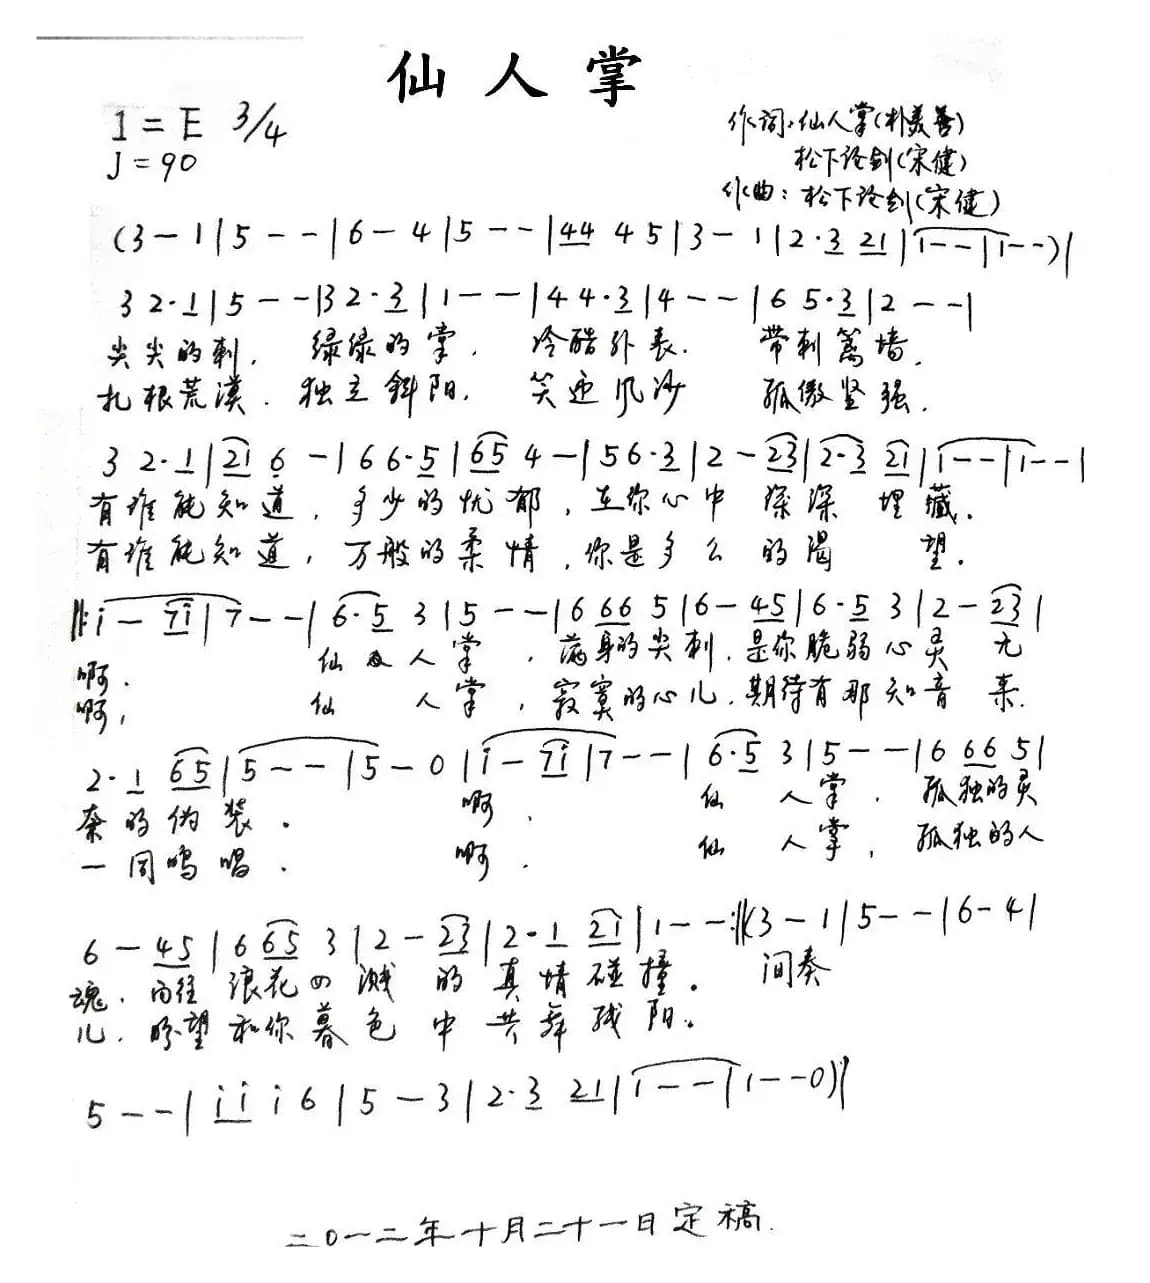 仙人掌
1=E 3/4
♩=90
作词:仙人掌(朴美善)
松下论剑(宋健)
作曲:松下论剑(宋健)
(3 – 1|5 – –|6 – 4|5 – –|44 4 5|3 – 1|2·3 21|1 – –|1 – –)|
3 2·1|5 – –|3 2·3|1 – –|4 4·3|4 – –|6 5·3|2 – –|
尖尖的刺, 绿绿的掌, 冷酷外表, 带刺篱墙,
扎根荒漠, 独立斜阳, 笑迎风沙 孤傲坚强,
3 2·1|21 6 –|6 6·5|65 4 –|5 6·3|2 – 23|2·3 21|1 – –|1 – –|
有谁能知道, 多少的忧郁, 在你心中 深深 埋藏.
有谁能知道, 万般的柔情, 你是多么 的渴 望.
‖:i – 7i|7 – –|6·5 3|5 – –|6 66 5|6 – 45|6·5 3|2 – 23|
啊, 仙 人 掌, 满身的尖刺, 是你脆弱心灵 无
啊, 仙 人 掌, 寂寞的心儿, 期待有那知音 来
2·1 65|5 – –|5 – 0|i – 7i|7 – –|6·5 3|5 – –|6 66 5|
奈的伪装. 啊, 仙 人掌, 孤独的灵
一同鸣唱. 啊, 仙 人掌, 孤独的人
6 – 45|6 65 3|2 – 23|2·1 21|1 – –:‖(3 – 1|5 – –|6 – 4|
魂, 向往 浪花四溅 的 真情碰撞. 间奏
儿, 盼望和你暮色 中 共舞残阳.
5 – –|i i i 6|5 – 3|2·3 21|1 – –|1 – – 0)|
二0一二年十月二十一日定稿.